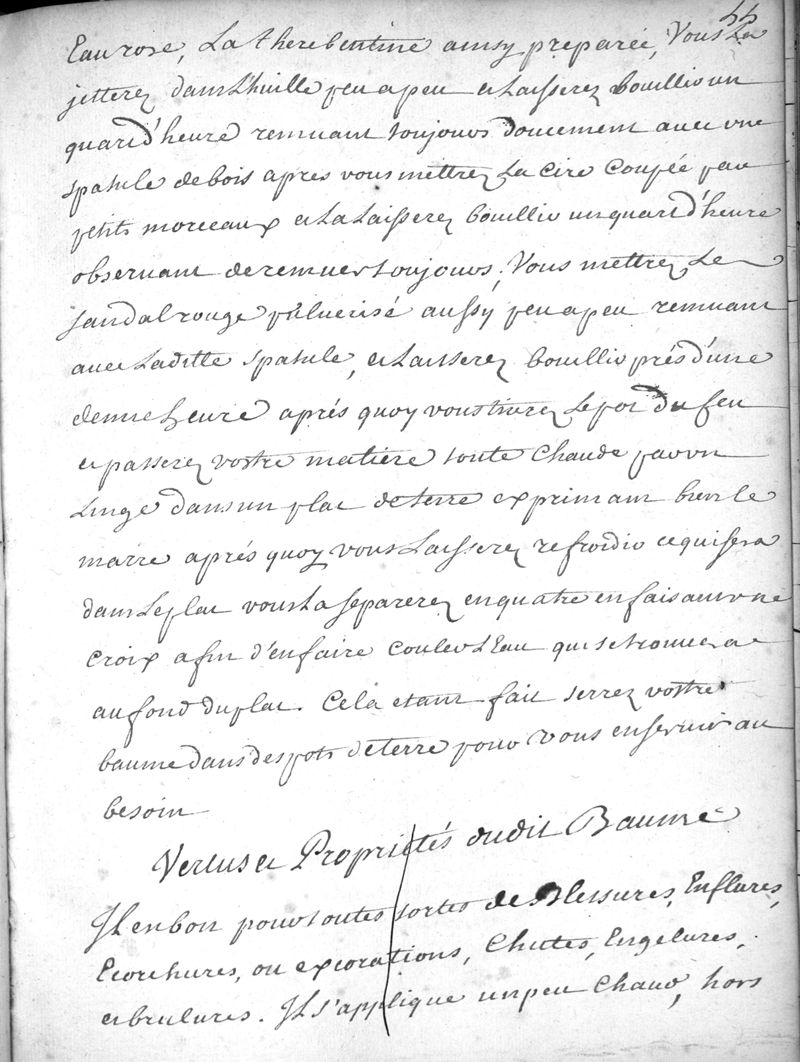 55
Eau rose, La therebentine ainsy preparée, Vous La
jetterez dans L'huille peu a peu et Laisserez bouillir un
quart d'heure remuant toujours doucement avec une
spatule de bois apres vous mettrez La cire Coupée par
petits morceaux et La Laisserez bouillir un quart d'heure
observant de remuer toujours, Vous mettrez Le
sandal rouge pulverisé aussy peu a peu remuant
avec Laditte spatule, et Laisserez bouillir prés d'une
demie heure aprés quoy vous tirerez Le pot du feu
et passerez vostre matiere toute Chaude par un
Linge dans un plat de terre exprimant bien le
marre aprés quoy vous Laisserez refroidir ce qui sera
dans Le plat vous La separerez en quatre en faisant une
croix afin d'en faire Couler L'Eau qui se trouvera
au fond du plat. Cela etant fait serrez vostre
baume dans des pots de terre pour vous en servir au
besoin
Vertus et Proprietés dudit Baume
Il en bon pour toutes sortes de Blessures, Enflures,
Ecorchures, ou excorations, Chutes, Engelures,
et brulures. Il s'applique un peu Chaud, hors